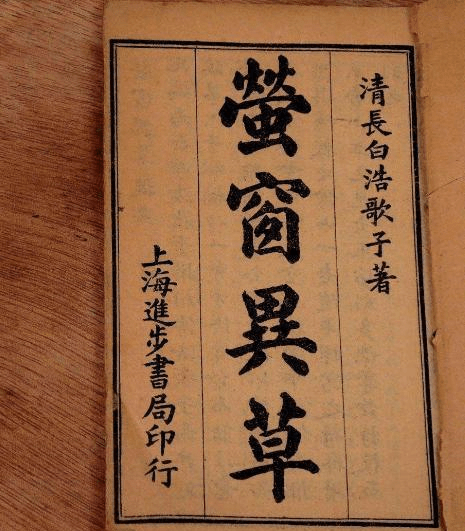 清長白浩歌子著
螢窗異草
上海進步書局印行